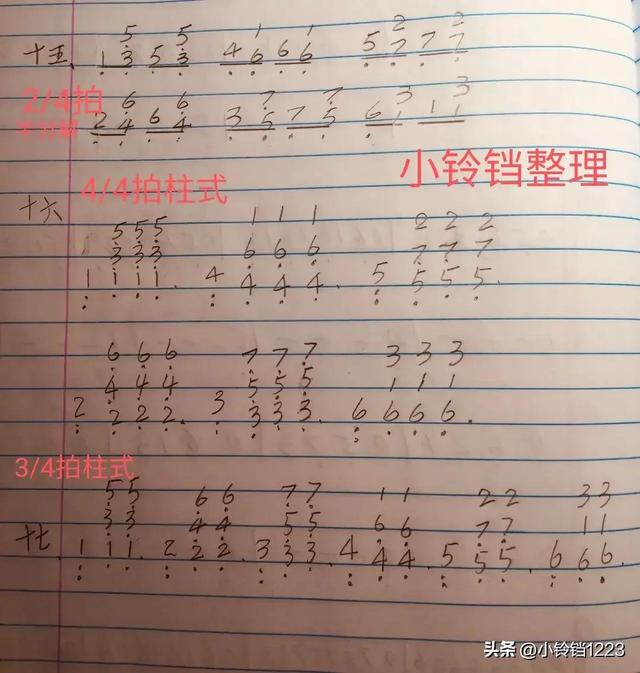 5 5 1 1 2 2
十五、1 3 5 3 4 6 6 6 5 7 7 7
2/4拍
6 6 7 7 3 3
2 4 6 4 3 5 7 5 6 1 1 1
半分解
小铃铛整理
十六 4/4拍柱式
5 5 5 1 1 1 2 2 2
3 3 3 6 6 6 7 7 7
1 1 1 1. 4 4 4 4. 5 5 5 5.
6 6 6 7 7 7 3 3 3
4 4 4 5 5 5 1 1 1
2 2 2 2. 3 3 3 3. 6 6 6 6.
3/4拍柱式
5 5 6 6 7 7 1 1 2 2 3 3
3 3 4 4 5 5 6 6 7 7 1 1
十七. 1 1 1. 2 2 2. 3 3 3. 4 4 4. 5 5 5. 6 6 6.
头条 @小铃铛1223